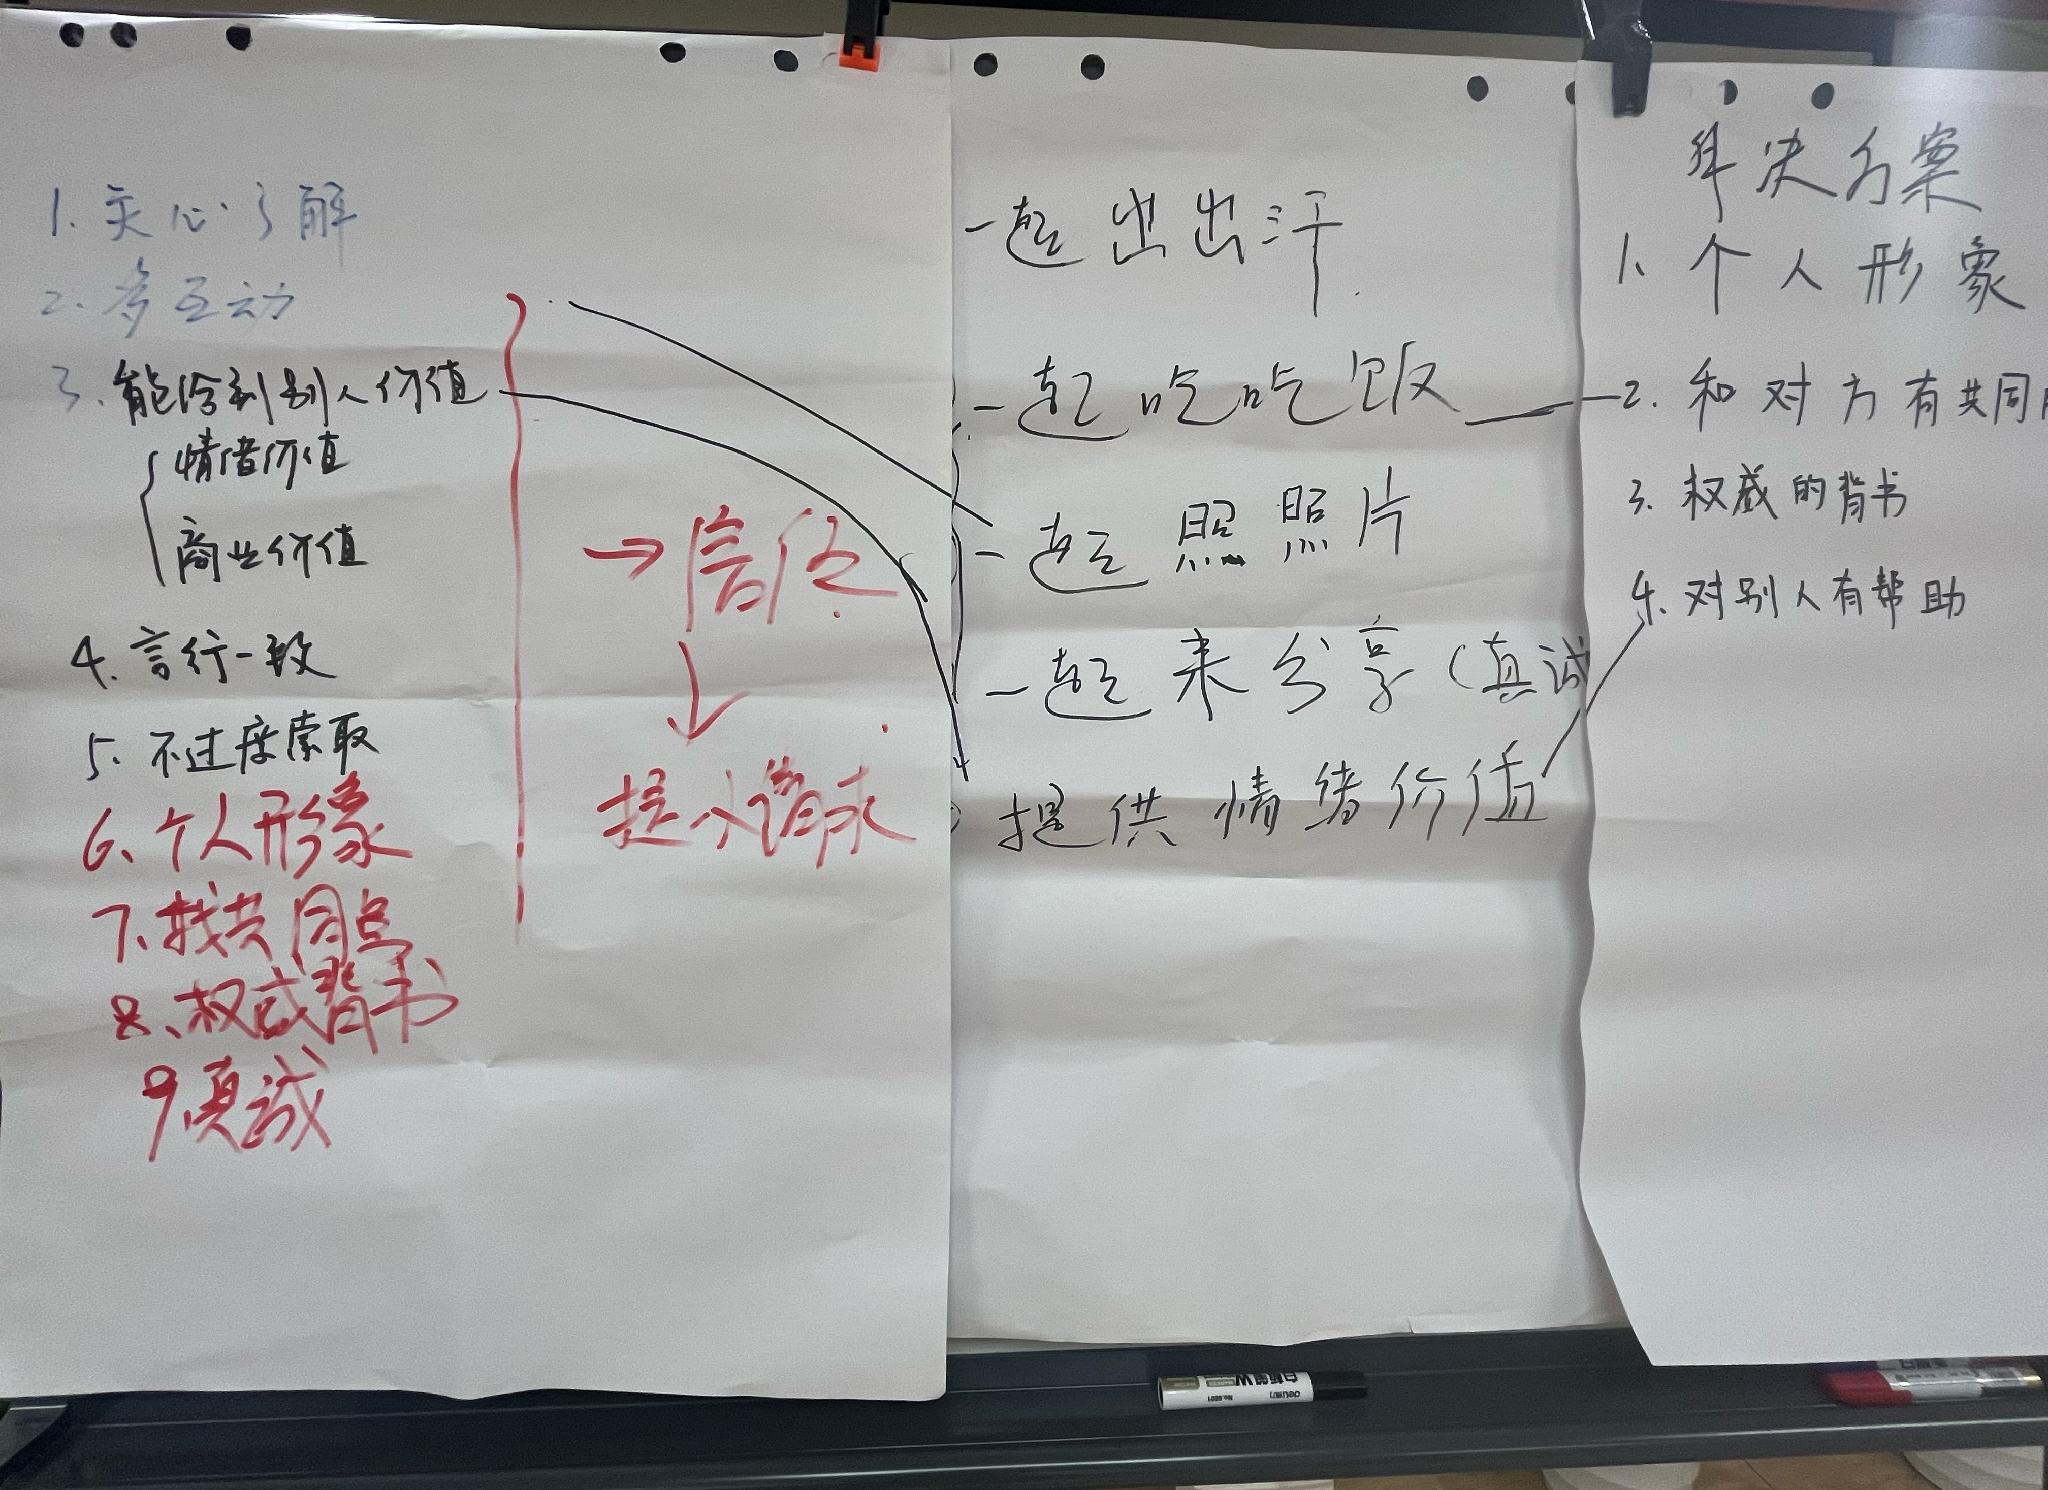 1. 关心了解
2. 多互动
3. 能给到别人价值
情绪价值
商业价值
4. 言行一致
5. 不过度索取
6、个人形象
7、找共同点
8、权威背书
9、真诚
→信任
↓
提小请求
一起出出汗
一起吃吃饭
一起照照片
一起来分享(真诚
提供情绪价值
解决方案
1、个人形象
2. 和对方有共同
3. 权威的背书
4. 对别人有帮助
白板笔W
deli
No.6801